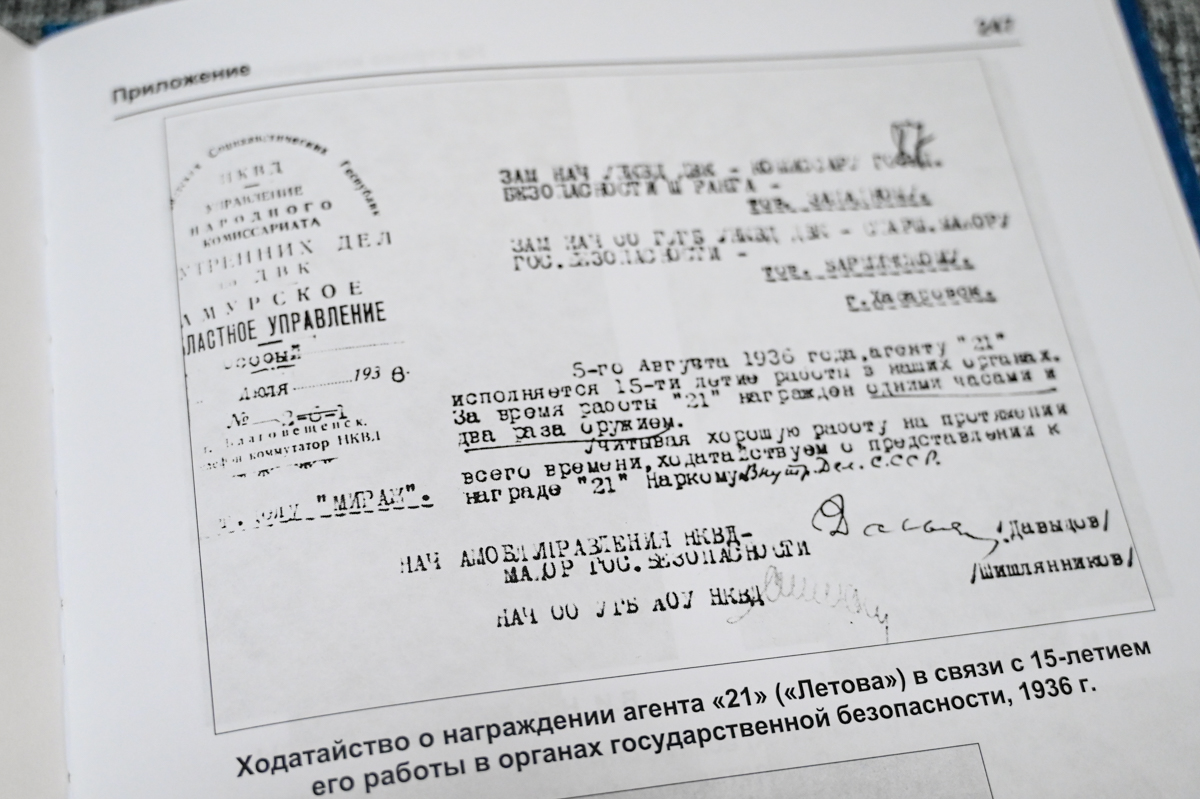 Приложение
247
Социалистических Республик
НКВД
УПРАВЛЕНИЕ
НАРОДНОГО
КОМИССАРИАТА
УТРЕННИХ ДЕЛ
ДВК
АМУРСКОЕ
ЛАСТНОЕ УПРАВЛЕНИЕ
особый
Июля 193 6.
№ 2-0-1
г. Благовещенск.
коммутатор НКВД
"МИРАЖ".
ЗАМ НАЧ УНКВД ДВК - КОМИССАРУ ГОСУД.
БЕЗОПАСНОСТИ Ш РАНГА -
ТОВ. ЗАПАДНОМУ.
ЗАМ НАЧ ОО УГБ УНКВД ДВК - СТАРШ.МАЙОРУ
ГОС.БЕЗОПАСНОСТИ -
ТОВ. БАРМИНСКОМУ.
г.Хабаровск.
5-го Августа 1936 года,агенту "21"
исполняется 15-ти летие работы в наших органах.
За время работы "21" награжден одними часами и
два раза оружием.
Учитывая хорошую работу на протяжении
всего времени,ходатайствуем о представлении к
награде "21" Наркому Внутр. Дел. СССР.
НАЧ АМОБЛУПРАВЛЕНИЯ НКВД-
МАЙОР ГОС.БЕЗОПАСНОСТИ
/Давыдов/
НАЧ ОО УГБ АОУ НКВД
/Шишлянников/
Ходатайство о награждении агента «21» («Летова») в связи с 15-летием
его работы в органах государственной безопасности, 1936 г.